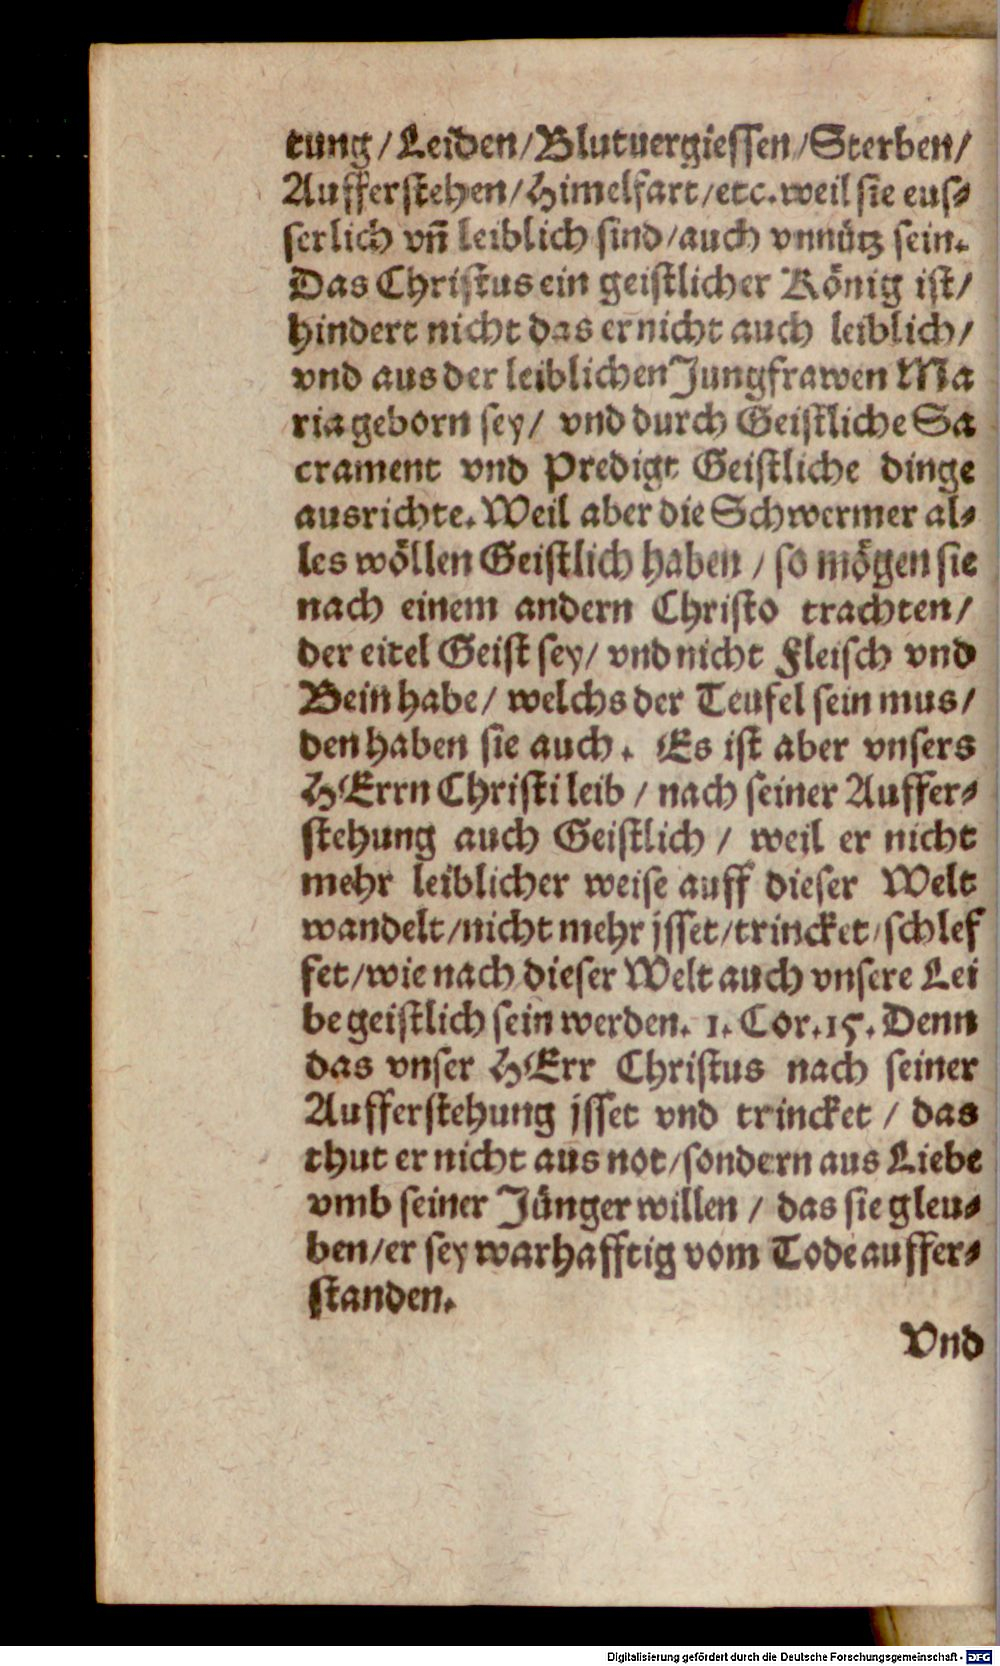 tung / Leiden / Blutuergiessen / Sterben /
Aufferstehen / Himelfart / etc. weil sie eus⸗
serlich vñ leiblich sind / auch vnnütz sein.
Das Christus ein geistlicher König ist /
hindert nicht das er nicht auch leiblich /
vnd aus der leiblichen Jungfrawen Ma
ria geborn sey / vnd durch Geistliche Sa
crament vnd Predigt Geistliche dinge
ausrichte. Weil aber die Schwermer al⸗
les wöllen Geistlich haben / so mögen sie
nach einem andern Christo trachten /
der eitel Geist sey / vnd nicht Fleisch vnd
Bein habe / welchs der Teufel sein mus /
den haben sie auch. Es ist aber vnsers
HErrn Christi leib / nach seiner Auffer⸗
stehung auch Geistlich / weil er nicht
mehr leiblicher weise auff dieser Welt
wandelt / nicht mehr jsset / trincket / schlef
fet / wie nach dieser Welt auch vnsere Lei
be geistlich sein werden. 1. Cor. 15. Denn
das vnser HErr Christus nach seiner
Aufferstehung jsset vnd trincket / das
thut er nicht aus not / sondern aus Liebe
vmb seiner Jünger willen / das sie gleu⸗
ben / er sey warhafftig vom Tode auffer⸗
standen.
Vnd
Digitalisierung gefördert durch die Deutsche Forschungsgemeinschaft - DFG